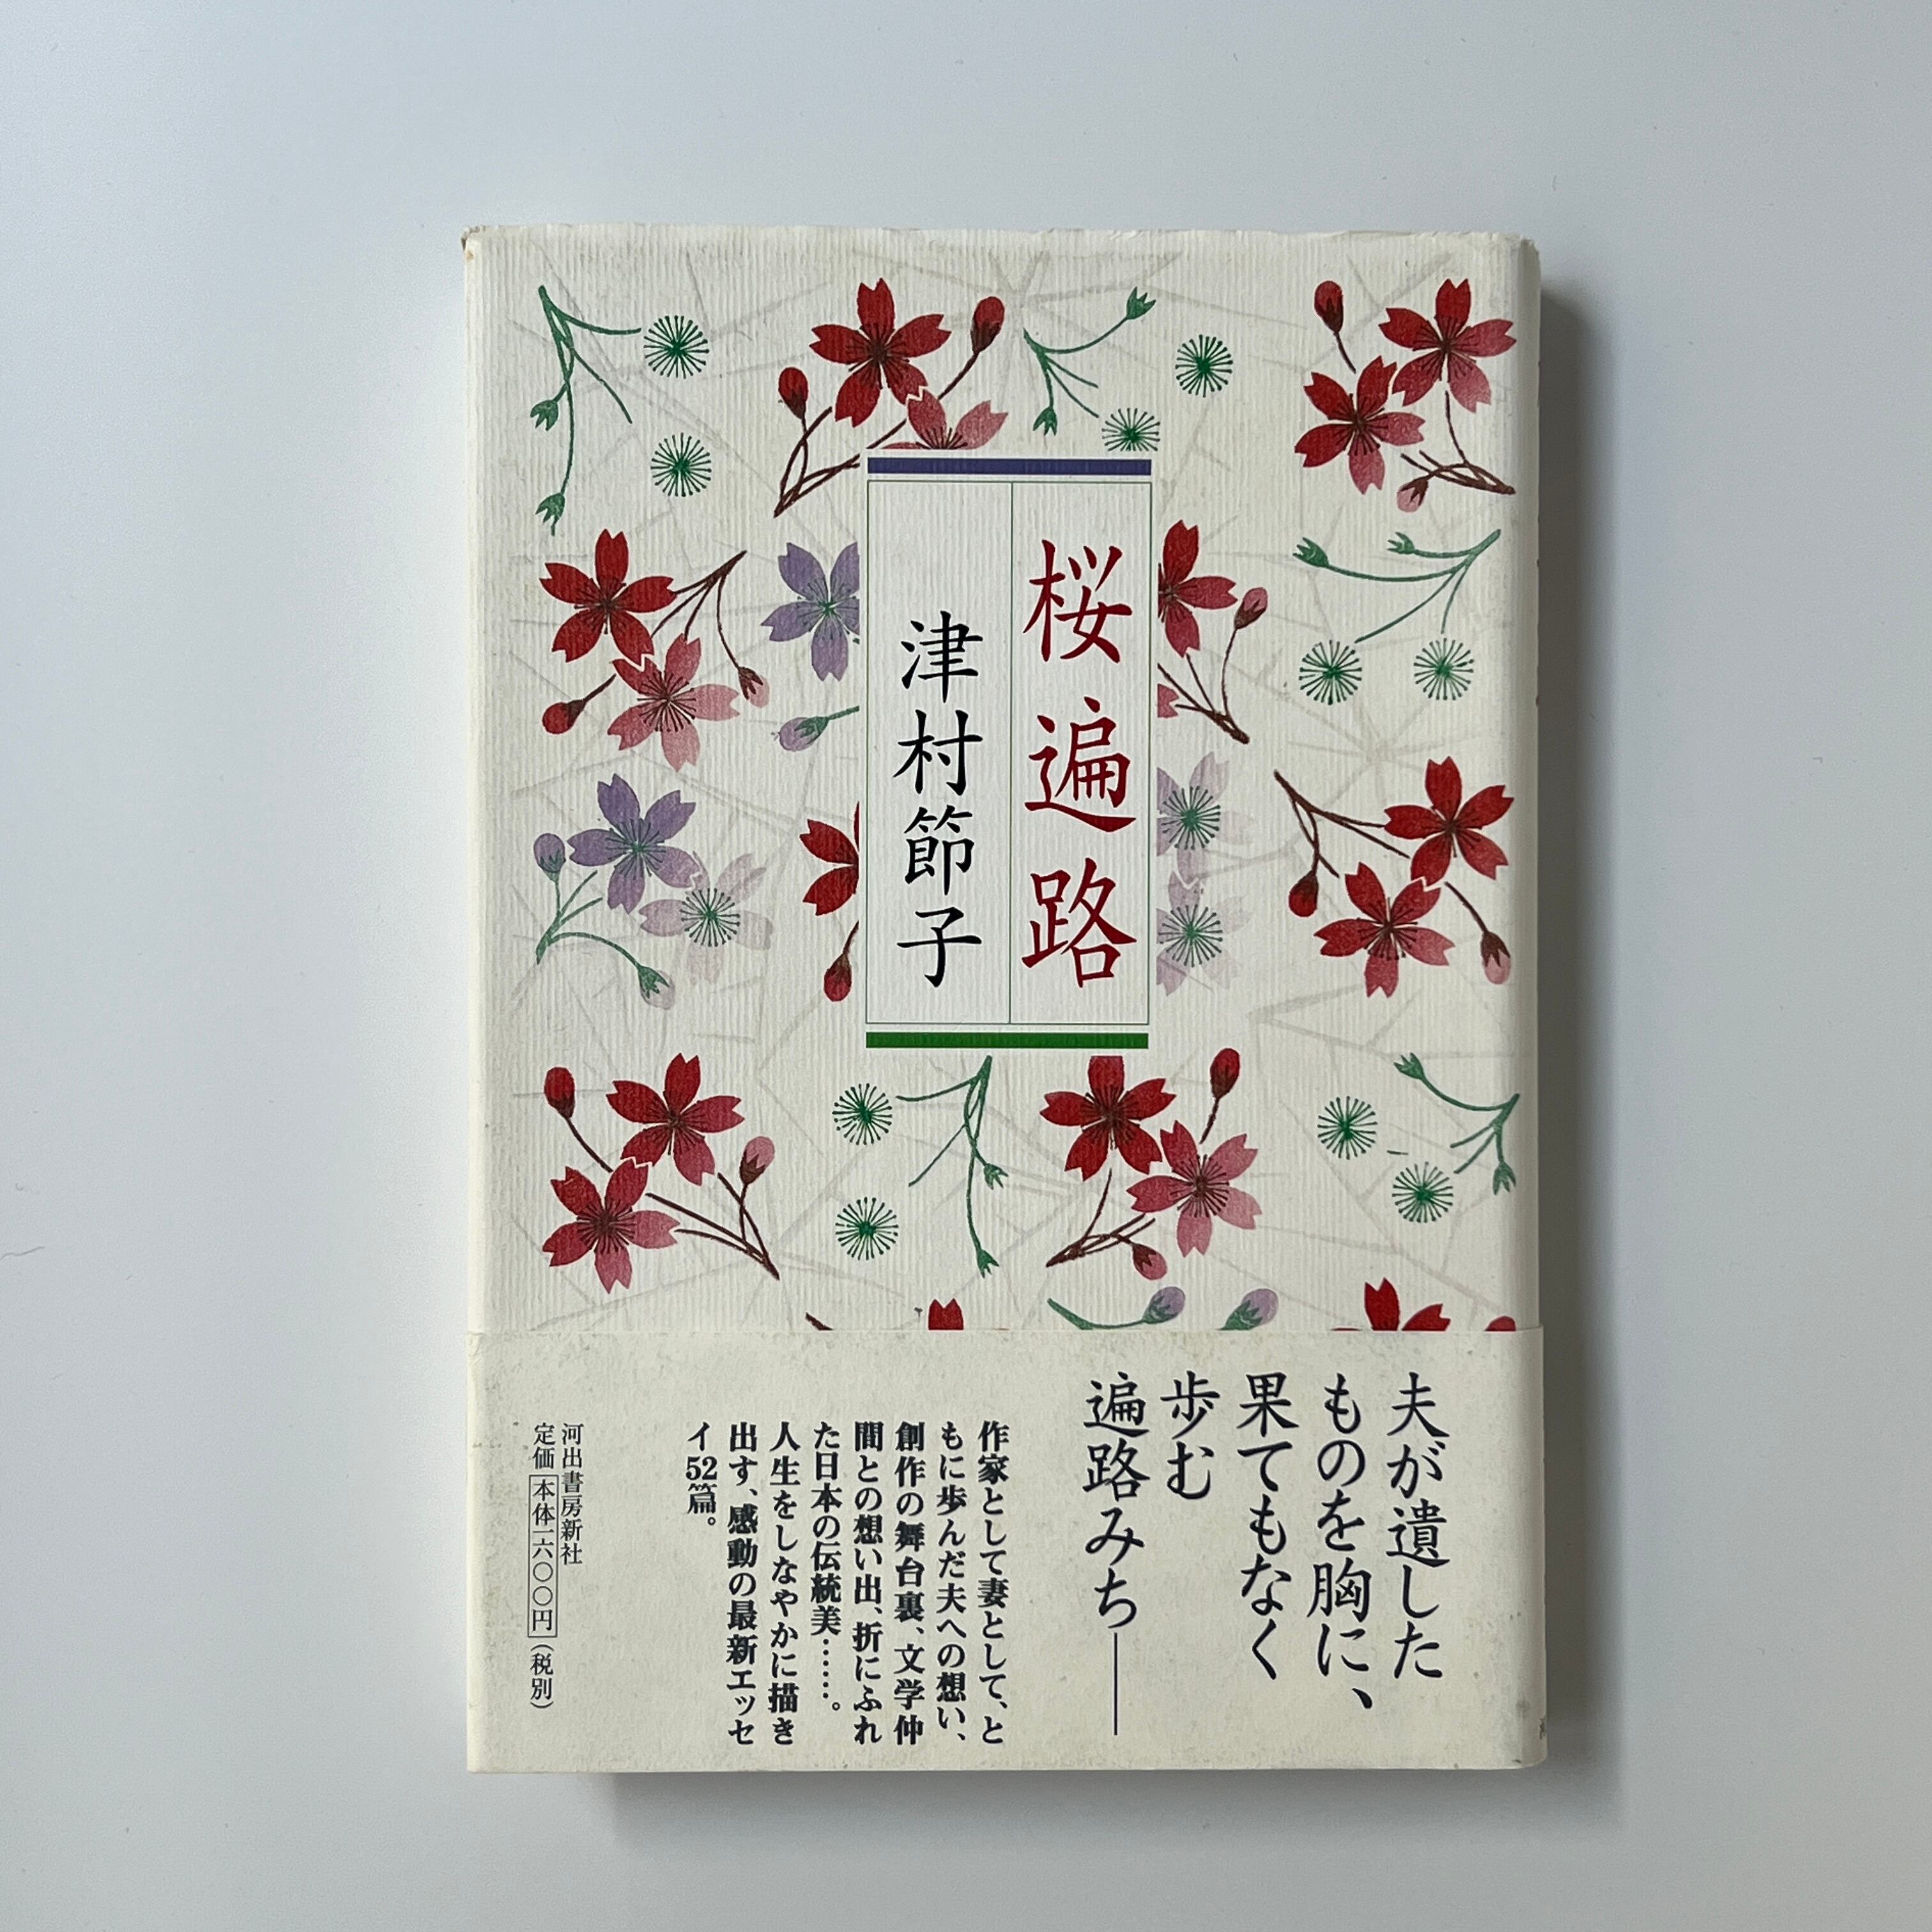 桜遍路
津村節子
夫が遺した
ものを胸に、
果てもなく
歩む
遍路みち――
作家として妻として、と
もに歩んだ夫への想い、
創作の舞台裏、文学仲
間との想い出、折にふれ
た日本の伝統美……。
人生をしなやかに描き
出す、感動の最新エッセ
イ52篇。
河出書房新社
定価 本体一六〇〇円(税別)